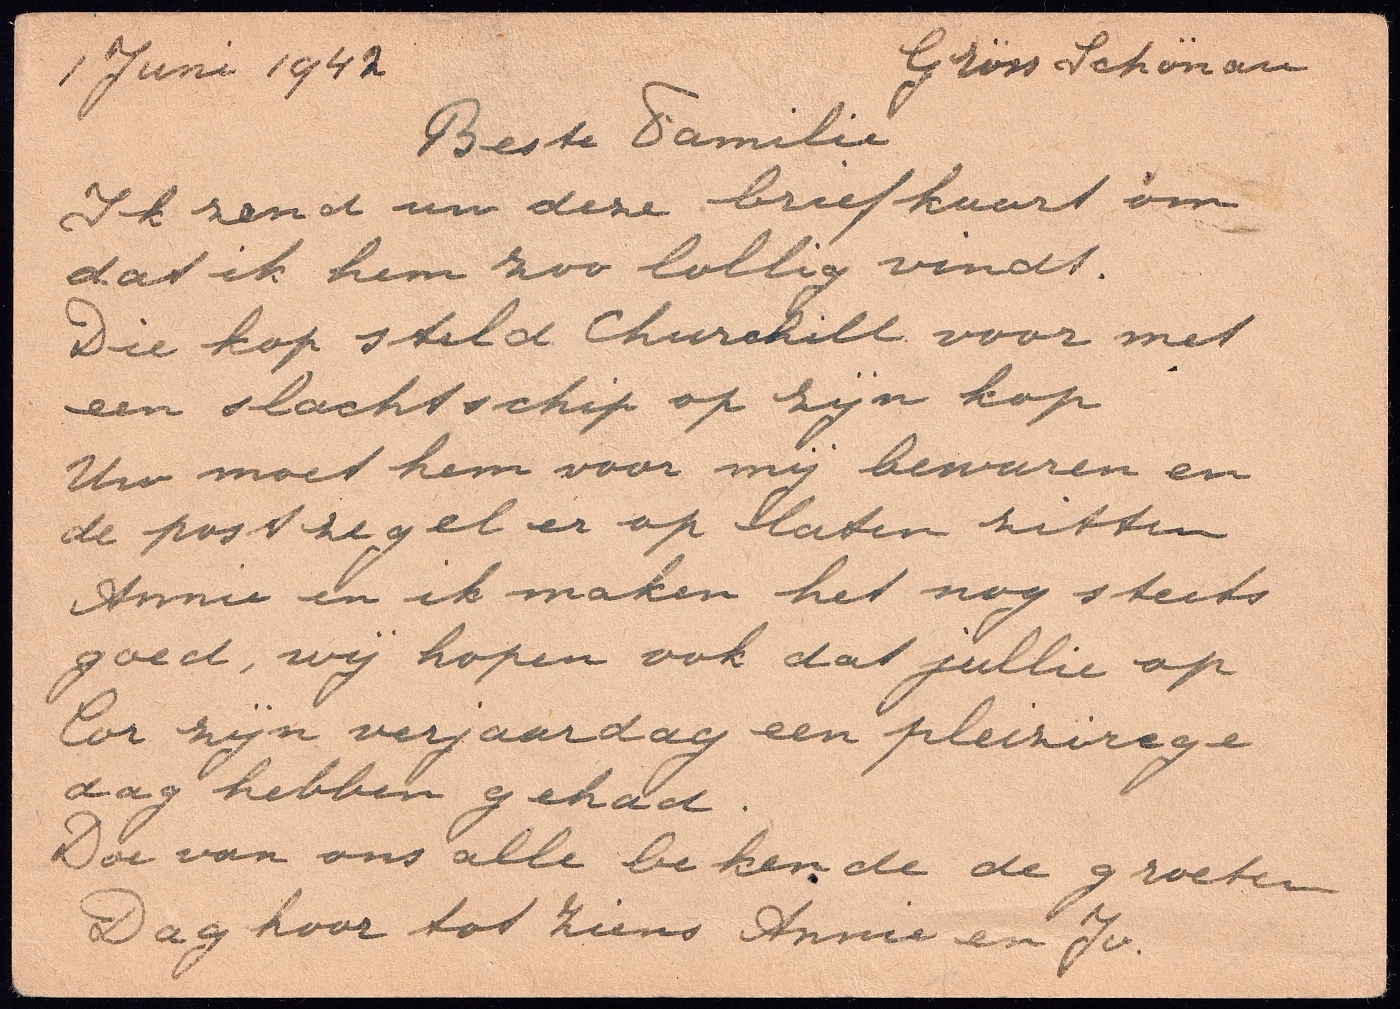 1 Juni 1942 Gröss Schönau
Beste Familie
Ik zend uw deze briefkaart om
dat ik hem zoo lollig vindt.
Die kop steld Churchill voor met
een slachtschip op zijn kop
Uw moet hem voor mij bewaren en
de postzegel er op laten zitten
Annie en ik maken het nog steets
goed, wij hopen ook dat jullie op
Cor zijn verjaardag een pleizirege
dag hebben gehad.
Doe van ons alle bekende de groeten
Dag hoor tot ziens Annie en Jo.